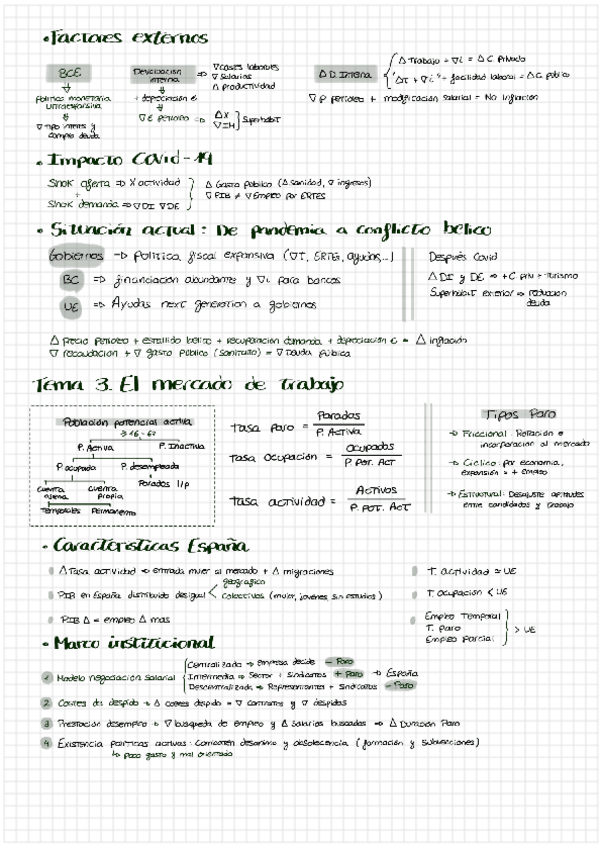 • Factores externos
BCE
Política monetaria ultraexpansiva
∇ tipo interés y compra deuda
Devaluación interna ⇒ ∇ costes laborales
∇ Salarios
Δ productividad
+ depreciación €
∇ € petróleo ⇒ ΔX
∇IM } Superhábit
Δ D. Interna
Δ Trabajo + ∇i = Δ C Privado
ΔT + ∇i + facilidad laboral = Δ G público
∇ P petróleo + modificación salarial = No inflación
• Impacto Covid-19
Shok oferta ⇒ X actividad
+
Shok demanda ⇒ ∇DI ∇DE
Δ Gasto Público (Δ sanidad, ∇ ingresos)
∇ PIB ≠ ∇ Empleo por ERTES
• Situación actual: De pandemia a conflicto bélico
Gobiernos → Política fiscal expansiva (∇T, ERTEs, ayudas...)
BC ⇒ financiación abundante y ∇i para bancos
UE ⇒ Ayudas next generation a gobiernos
Después Covid
Δ DI y DE ⇒ + C priv + turismo
Superhábit exterior ⇒ reducción deuda
Δ precio petróleo + estallido bélico + recuperación demanda + depreciación € = Δ inflación
∇ recaudación + ∇ gasto público (sanitario) = ∇ Deuda Pública
Tema 3. El mercado de trabajo
Población potencial activa
→ 16 - 65
P. Activa
P. Inactiva
P. ocupada
P. desempleada
cuenta ajena
cuenta propia
Parados l/p
Temporales
Permanente
Tasa paro = Parados / P. Activa
Tasa ocupación = Ocupados / P. Pot. Act
Tasa actividad = Activos / P. Pot. Act
Tipos Paro
→ Friccional: Rotación e incorporación al mercado
→ Cíclico: por economía, expansión = + empleo
→ Estructural: Desajuste aptitudes entre candidatos y trabajo
• Características España
Δ Tasa actividad ⇒ entrada mujer al mercado + Δ migraciones
PIB en España distribuido desigual < geográfico
Colectivos (mujer, jóvenes, sin estudios)
PIB Δ = empleo Δ más
T. actividad = UE
T. ocupación < UE
Empleo Temporal
T. paro
Empleo parcial } > UE
• Marco institucional
1 Modelo negociación salarial
Centralizada ⇒ empresa decide - Paro
Intermedia ⇒ Sector + Sindicatos + Paro → España
Descentralizada ⇒ Representantes + Sindicatos - Paro
2 Costes de despido ⇒ Δ costes despido = ∇ contratos y ∇ despidos
3 Prestación desempleo ⇒ ∇ búsqueda de empleo y Δ salarios buscados ⇒ Δ Duración Paro
4 Existencia políticas activas: Combaten desánimo y obsolescencia (formación y subvenciones)
↳ poco gasto y mal orientado